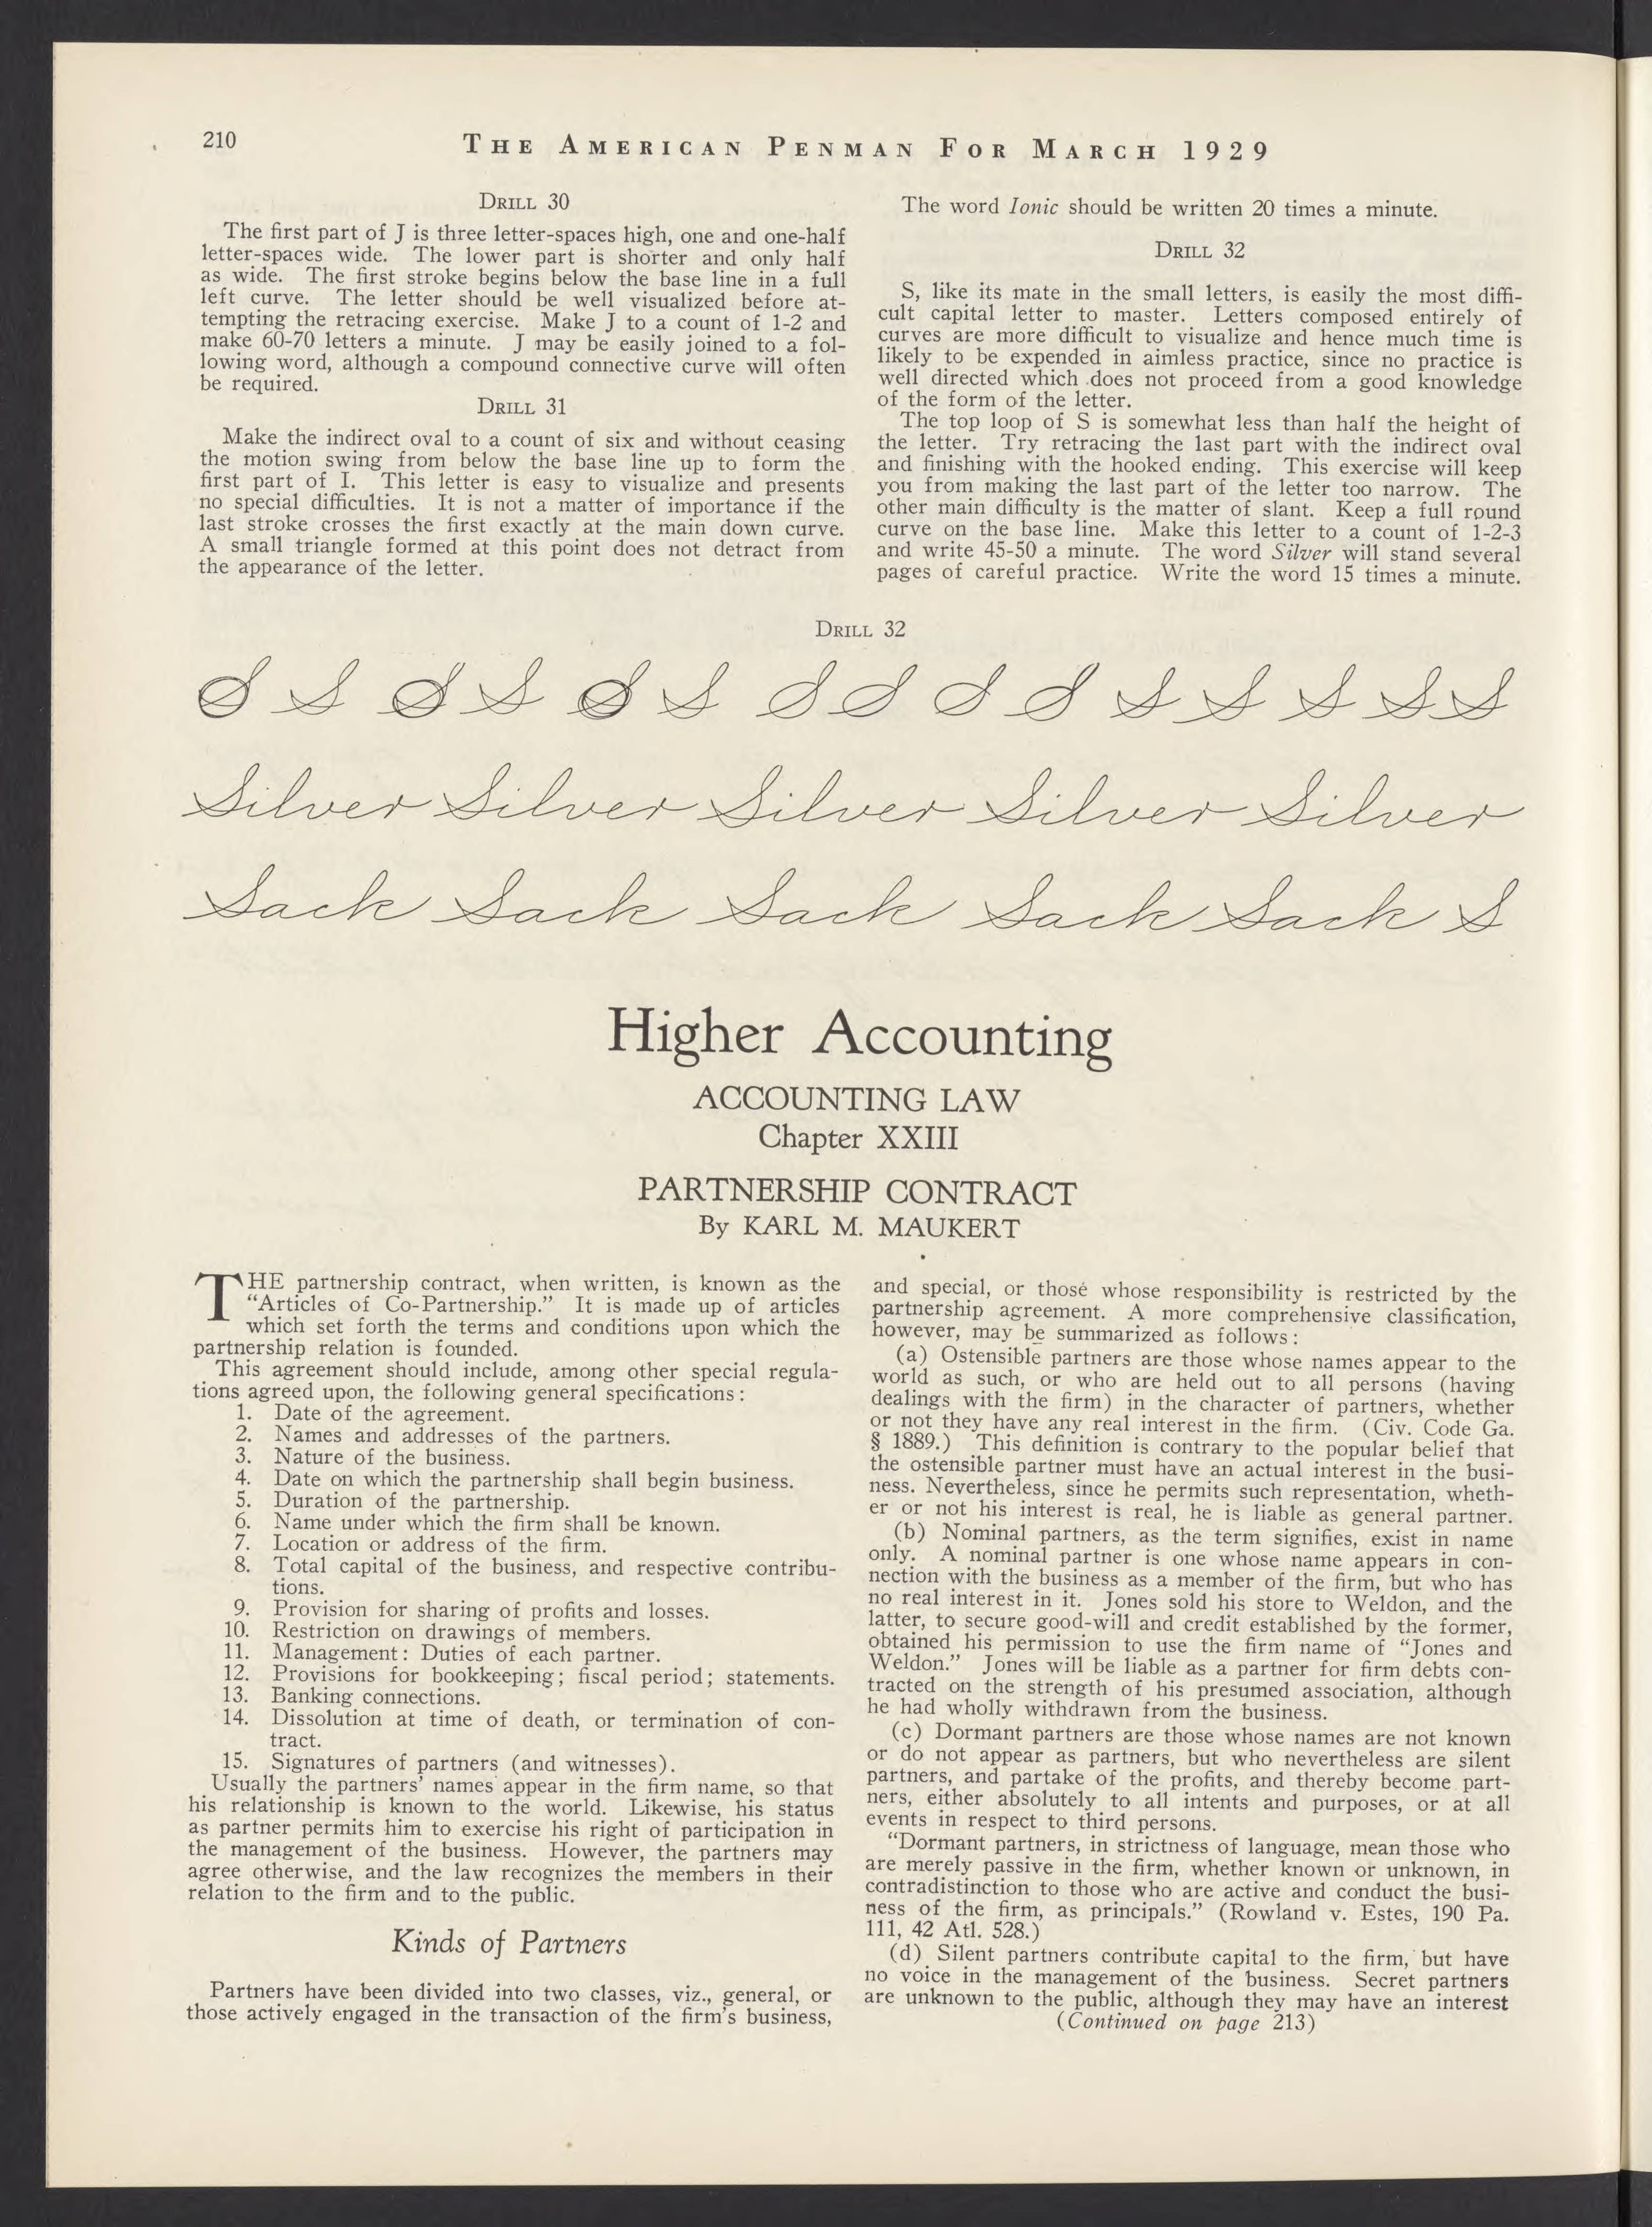 210
THE AMERICAN PENMAN FOR MARCH 1929
DRILL 30
The first part of J is three letter-spaces high, one and one-half
letter-spaces wide. The lower part is shorter and only half
as wide. The first stroke begins below the base line in a full
left curve. The letter should be well visualized before at-
tempting the retracing exercise. Make J to a count of 1-2 and
make 60-70 letters a minute. J may be easily joined to a fol-
lowing word, although a compound connective curve will often
be required.
DRILL 31
Make the indirect oval to a count of six and without ceasing
the motion swing from below the base line up to form the
first part of I. This letter is easy to visualize and presents
no special difficulties. It is not a matter of importance if the
last stroke crosses the first exactly at the main down curve.
A small triangle formed at this point does not detract from
the appearance of the letter.
The word Ionic should be written 20 times a minute.
DRILL 32
S, like its mate in the small letters, is easily the most diffi-
cult capital letter to master. Letters composed entirely of
curves are more difficult to visualize and hence much time is
likely to be expended in aimless practice, since no practice is
well directed which does not proceed from a good knowledge
of the form of the letter.
The top loop of S is somewhat less than half the height of
the letter. Try retracing the last part with the indirect oval
and finishing with the hooked ending. This exercise will keep
you from making the last part of the letter too narrow. The
other main difficulty is the matter of slant. Keep a full round
curve on the base line. Make this letter to a count of 1-2-3
and write 45-50 a minute. The word Silver will stand several
pages of careful practice. Write the word 15 times a minute.
DRILL 32
S S S S S S S S S S S S S S S
Silver Silver Silver Silver Silver
Sack Sack Sack Sack Sack S
Higher Accounting
ACCOUNTING LAW
Chapter XXIII
PARTNERSHIP CONTRACT
By KARL M. MAUKERT
THE partnership contract, when written, is known as the
"Articles of Co-Partnership." It is made up of articles
which set forth the terms and conditions upon which the
partnership relation is founded.
This agreement should include, among other special regula-
tions agreed upon, the following general specifications:
1. Date of the agreement.
2. Names and addresses of the partners.
3. Nature of the business.
4. Date on which the partnership shall begin business.
5. Duration of the partnership.
6. Name under which the firm shall be known.
7. Location or address of the firm.
8. Total capital of the business, and respective contribu-
tions.
9. Provision for sharing of profits and losses.
10. Restriction on drawings of members.
11. Management: Duties of each partner.
12. Provisions for bookkeeping; fiscal period; statements.
13. Banking connections.
14. Dissolution at time of death, or termination of con-
tract.
15. Signatures of partners (and witnesses).
Usually the partners' names appear in the firm name, so that
his relationship is known to the world. Likewise, his status
as partner permits him to exercise his right of participation in
the management of the business. However, the partners may
agree otherwise, and the law recognizes the members in their
relation to the firm and to the public.
Kinds of Partners
Partners have been divided into two classes, viz., general, or
those actively engaged in the transaction of the firm's business,
and special, or those whose responsibility is restricted by the
partnership agreement. A more comprehensive classification,
however, may be summarized as follows:
(a) Ostensible partners are those whose names appear to the
world as such, or who are held out to all persons (having
dealings with the firm) in the character of partners, whether
or not they have any real interest in the firm. (Civ. Code Ga.
§ 1889.) This definition is contrary to the popular belief that
the ostensible partner must have an actual interest in the busi-
ness. Nevertheless, since he permits such representation, wheth-
er or not his interest is real, he is liable as general partner.
(b) Nominal partners, as the term signifies, exist in name
only. A nominal partner is one whose name appears in con-
nection with the business as a member of the firm, but who has
no real interest in it. Jones sold his store to Weldon, and the
latter, to secure good-will and credit established by the former,
obtained his permission to use the firm name of "Jones and
Weldon." Jones will be liable as a partner for firm debts con-
tracted on the strength of his presumed association, although
he had wholly withdrawn from the business.
(c) Dormant partners are those whose names are not known
or do not appear as partners, but who nevertheless are silent
partners, and partake of the profits, and thereby become part-
ners, either absolutely to all intents and purposes, or at all
events in respect to third persons.
"Dormant partners, in strictness of language, mean those who
are merely passive in the firm, whether known or unknown, in
contradistinction to those who are active and conduct the busi-
ness of the firm, as principals." (Rowland v. Estes, 190 Pa.
111, 42 Atl. 528.)
(d) Silent partners contribute capital to the firm, but have
no voice in the management of the business. Secret partners
are unknown to the public, although they may have an interest
(Continued on page 213)